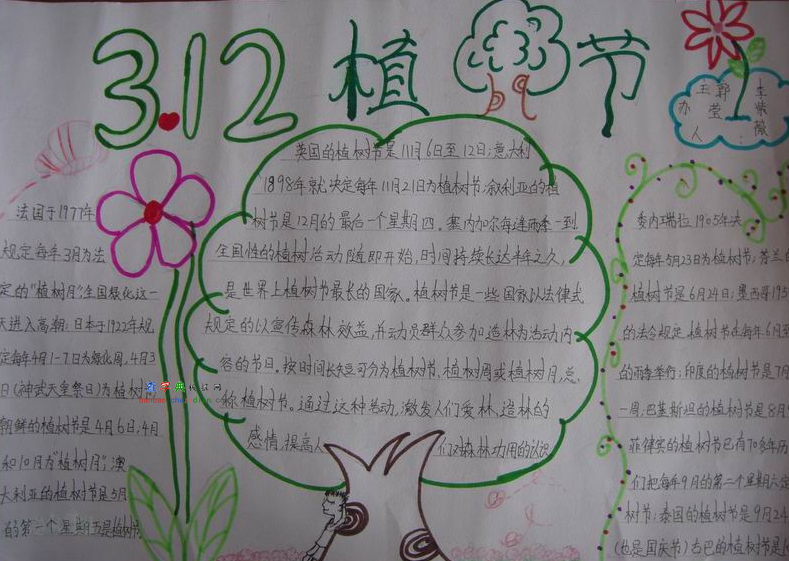 3.12植树节
主办人
郭莹
李紫薇
法国于1977年
规定每年3月为法
定的"植树月",全国绿化这一
天进入高潮;日本于1922年规
定每年4月1-7日为绿化周,4月3
日(神武天皇祭日)为植树节
朝鲜的植树节是4月6日,4月
和10月为"植树月";澳
大利亚的植树节是5月
的第一个星期五是植树节
英国的植树节是11月6日至12日;意大利
1898年就决定每年11月21日为植树节;叙利亚的植
树节是12月的最后一个星期四。塞内加尔每逢雨季一到
全国性的植树活动随即开始,时间持续长达半年之久,
是世界上植树节最长的国家。植树节是一些国家以法律式
规定的以宣传森林效益,并动员群众参加造林为活动内
容的节日。按时间长短可分为植树节,植树周或植树月,总
称植树节。通过这种活动,激发人们爱林,造林的
感情,提高人们对森林功用的认识
委内瑞拉1905年决
定每年5月23日为植树节;芬兰的
植树节是6月24日;墨西哥195
的法令规定,植树节在每年6月至
的雨季举行;印度的植树节是7月
一周;巴基斯坦的植树节是8月
菲律宾的植树节已有70多年历
们把每年9月的第二个星期六定
树节;泰国的植树节是9月24
(也是国庆节)古巴的植树节是10